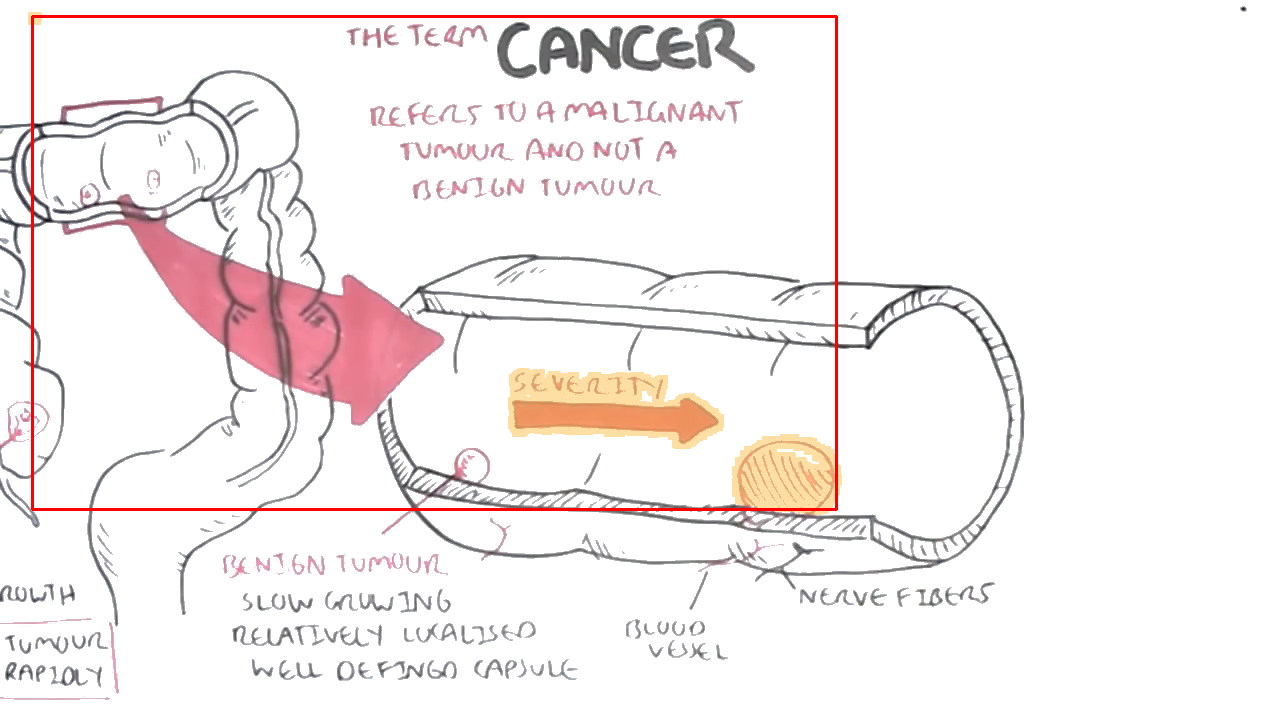 THE TERM CANCER
REFERS TO A MALIGNANT
TUMOUR AND NOT A
BENIGN TUMOUR
SEVERITY
BENIGN TUMOUR
SLOW GROWING
RELATIVELY LOCALISED
WELL DEFINED CAPSULE
BLOOD
VESSEL
NERVE FIBERS
ROWTH
TUMOUR
RAPIDLY